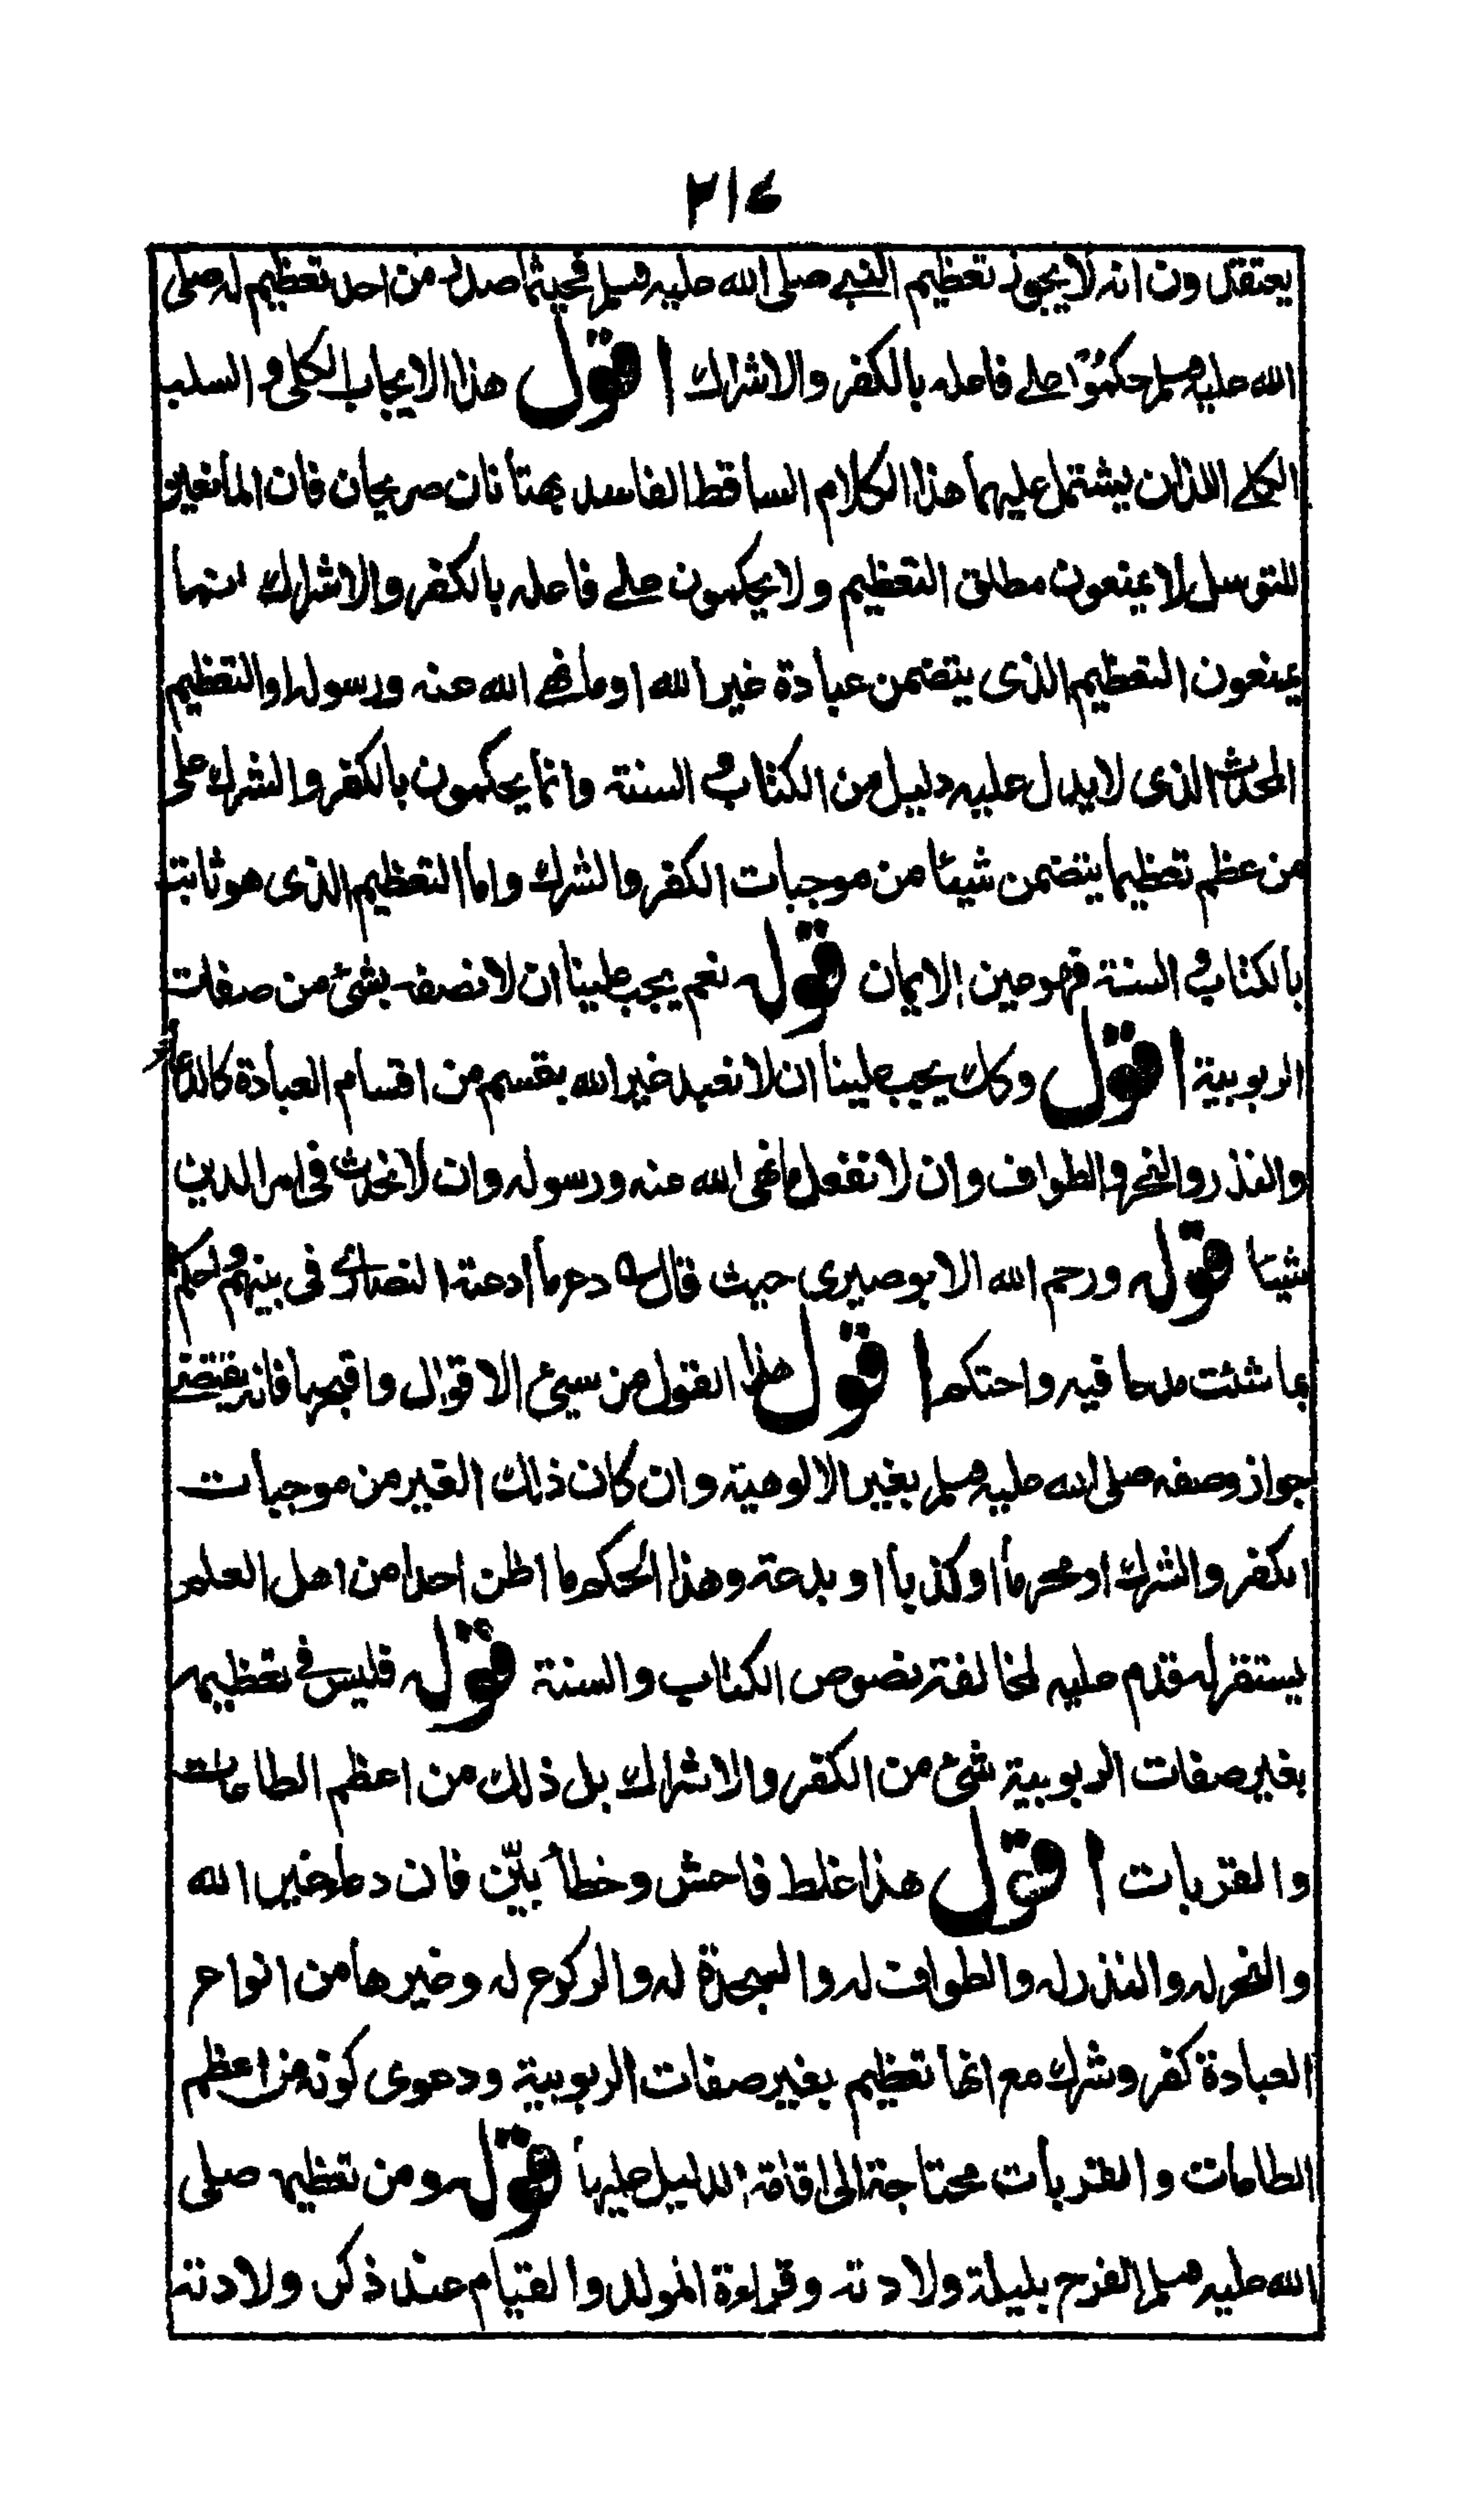 ٢١٤
يعتقدون انه لا يجوز تعظيم النبي صلى الله عليه وسلم فحيثما صدر من احد تعظيم له صلى
الله عليه وسلم حكموا على فاعله بالكفر والاشراك اقول هذا الايجاب الكلي و السلب
الكلي اللذان يشتمل عليهما هذا الكلام الساقط الفاسد بهتانان صريحان فان المانعين
للتوسل لا يمنعون مطلق التعظيم ولا يحكمون على فاعله بالكفر والاشراك انما
يمنعون التعظيم الذى يتضمن عبادة غير الله او ما نهى الله عنه ورسوله او التعظيم
المحدث الذى لا يدل عليه دليل من الكتاب و السنة وانما يحكمون بالكفر والشرك على
من عظم تعظيما يتضمن شيئا من موجبات الكفر والشرك واما التعظيم الذى هو ثابت
بالكتاب و السنة فهو عين الايمان قوله نعم يجب علينا ان لا نصفه بشئ من صفات
الربوبية اقول وكك يجب علينا ان لا نعبد غير الله بقسم من اقسام العبادة كالدعاء
والنذر والنحر والطواف وان لا نفعل ما نهى الله عنه ورسوله وان لا نحدث في امر الدين
شيئا قوله ورحم الله الابوصيرى حيث قال دع ما ادعته النصارى فى نبيهم واحكم
بما شئت مدحا فيه واحتكم اقول هذا القول من سيئ الاقوال واقبحها فانه يقتضي
جواز وصفه صلى الله عليه وسلم بغير الالوهية وان كان ذلك الغير من موجبات
الكفر والشرك او محرما او كذبا او بدعة وهذا الحكم ما اظن احدا من اهل العلم
يستقر له قدم عليه لمخالفته نصوص الكتاب والسنة قوله فليس في تعظيمه
بغير صفات الربوبية شئ من الكفر والاشراك بل ذلك من اعظم الطاعات
والقربات اقول هذا غلط فاحش وخطأ بيّن فان دعاء غير الله
والنحر له والنذر له والطواف له والسجدة له والركوع له وغيرها من انواع
العبادة كفر وشرك مع انها تعظيم بغير صفات الربوبية ودعوى كونه من اعظم
الطاعات والقربات محتاجة الى اقامة الدليل عليها قوله ومن تعظيمه صلى
الله عليه وسلم الفرح بليلة ولادته وقراءة المولد والقيام عند ذكر ولادته